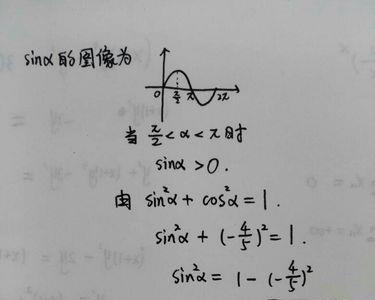 sinα的图像为
0 π/2 π 2π
当 π/2 < α < π 时
sinα > 0.
由 sin²α + cos²α = 1.
sin²α + (-4/5)² = 1.
sin²α = 1 - (-4/5)²